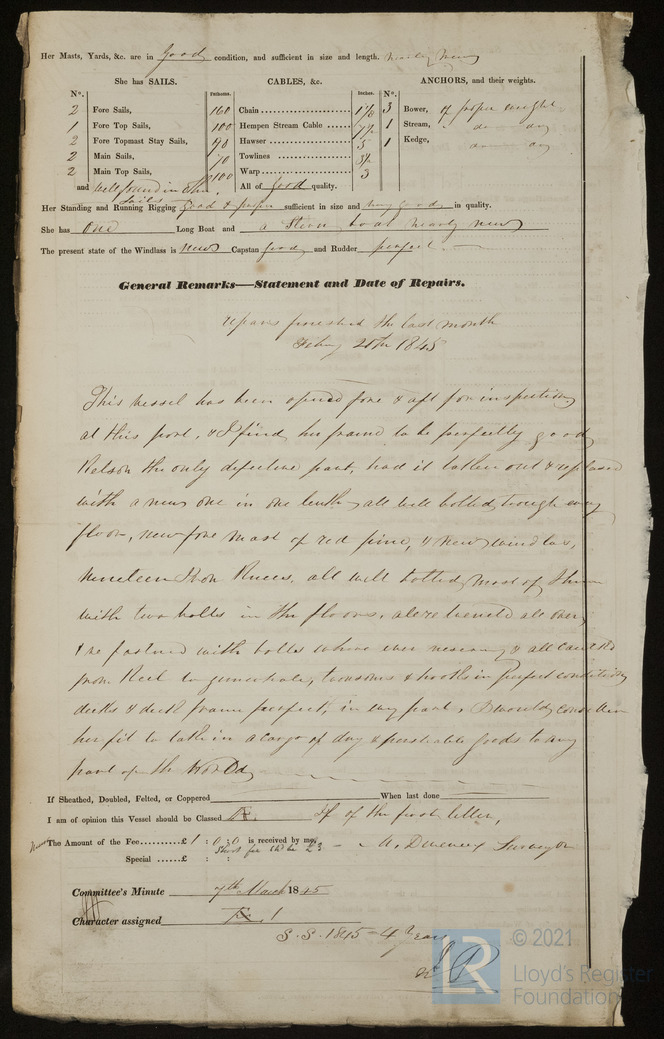 Her Masts, Yards, &c. are in good condition, and sufficient in size and length. nearly new
She has SAILS. CABLES, &c. ANCHORS, and their weights.
N°. Fathoms. Inches. N°.
2 Fore Sails, Chain 160 1 1/8 3 Bower, of proper weight
1 Fore Top Sails, Hempen Stream Cable 100 7 1/2 1 Stream, do
2 Fore Topmast Stay Sails, Hawser 90 5 1 Kedge,
2 Main Sails, Towlines 70
2 Main Top Sails, Warp 100 3
and well found in other sails All of good quality.
Her Standing and Running Rigging good & proper sufficient in size and very good in quality.
She has One Long Boat and a Stern boat nearly new
The present state of the Windlass is New Capstan good and Rudder perfect.
General Remarks—Statement and Date of Repairs.
repairs finished the last month
Feby 20th 1845
This vessel has been opened fore & aft for inspection
at this port, & I find her frame to be perfectly good
Kelson the only defective part, had it taken out & replaced
with a new one in one lenth all well bolted trough every
floor, new fore mast of red pine, & new windlas,
Nineteen Iron Knees, all well bolted, most of them
with two bolts in the floors, all over
& re fastned with bolts where ever & all caulked
from Keel to gunwhale, transoms & hooks in perfect condition
decks & deck frame perfect, in my part, I would consider
her fit to take in a cargo of dry & perishable goods to any
part of the World
If Sheathed, Doubled, Felted, or Coppered When last done
I am of opinion this Vessel should be Classed Æ. If of the first letter,
The Amount of the Fee........£ 1 : 0 : 0 is received by me, Surveyor
Special ......£ : :
Committee's Minute 7th March 1845
Character assigned Æ 1
S.S. 1845 - 4 Years
LR
© 2021
Lloyd's Register
Foundation